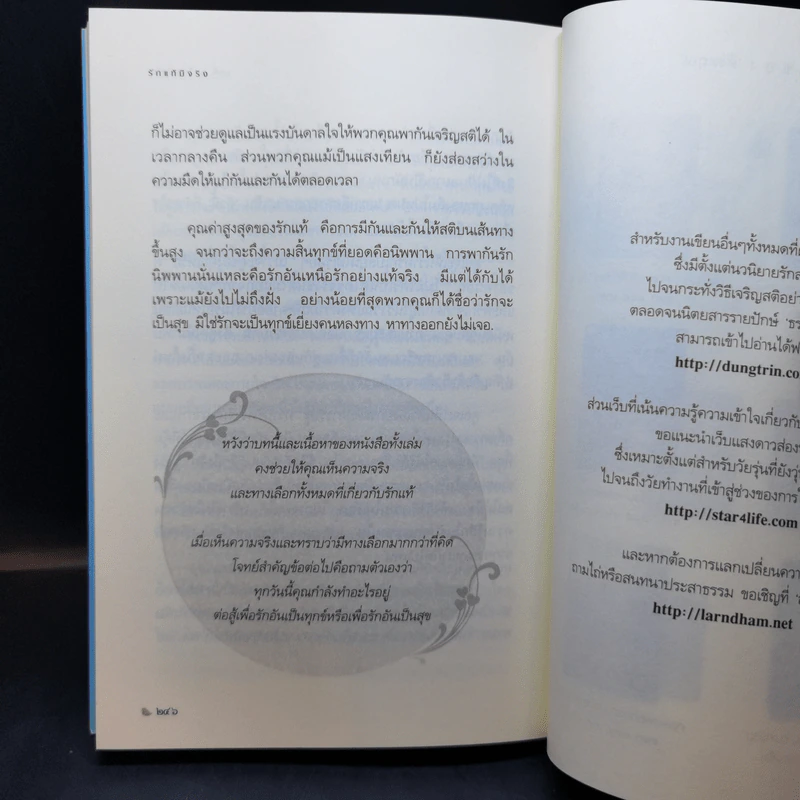 รักแท้มีจริง
ก็ไม่อาจช่วยดูแลเป็นแรงบันดาลใจให้พวกคุณพากันเจริญสติได้ ใน
เวลากลางคืน ส่วนพวกคุณแม้เป็นแสงเทียน ก็ยังส่องสว่างใน
ความมืดให้แก่กันและกันได้ตลอดเวลา
คุณค่าสูงสุดของรักแท้ คือการมีกันและกันให้สติบนเส้นทาง
ขึ้นสูง จนกว่าจะถึงความสิ้นทุกข์ที่ยอดคือนิพพาน การพากันรัก
นิพพานนั่นแหละคือรักอันเหนือรักอย่างแท้จริง มีแต่ได้กับได้
เพราะแม้ยังไปไม่ถึงฝั่ง อย่างน้อยที่สุดพวกคุณก็ได้ชื่อว่ารักจะ
เป็นสุข มิใช่รักจะเป็นทุกข์เยี่ยงคนหลงทาง หาทางออกยังไม่เจอ.
หวังว่าบทนี้และเนื้อหาของหนังสือทั้งเล่ม
คงช่วยให้คุณเห็นความจริง
และทางเลือกทั้งหมดที่เกี่ยวกับรักแท้
เมื่อเห็นความจริงและทราบว่ามีทางเลือกมากกว่าที่คิด
โจทย์สำคัญข้อต่อไปคือถามตัวเองว่า
ทุกวันนี้คุณกำลังทำอะไรอยู่
ต่อสู้เพื่อรักอันเป็นทุกข์หรือเพื่อรักอันเป็นสุข
๒๔๖
สำหรับงานเขียนอื่นๆทั้งหมดที่
ซึ่งมีตั้งแต่นวนิยายรัก
ไปจนกระทั่งวิธีเจริญสติอย่า
ตลอดจนนิตยสารรายปักษ์ 'ธร
สามารถเข้าไปอ่านได้ฟ
http://dungtrin.co
ส่วนเว็บที่เน้นความรู้ความเข้าใจเกี่ยวกับ
ขอแนะนำเว็บแสงดาวส่อง
ซึ่งเหมาะตั้งแต่สำหรับวัยรุ่นที่ยังวุ่
ไปจนถึงวัยทำงานที่เข้าสู่ช่วงของการ
http://star4life.com
และหากต้องการแลกเปลี่ยนควา
ถามไถ่หรือสนทนาประสาธรรม ขอเชิญที่
http://larndham.net